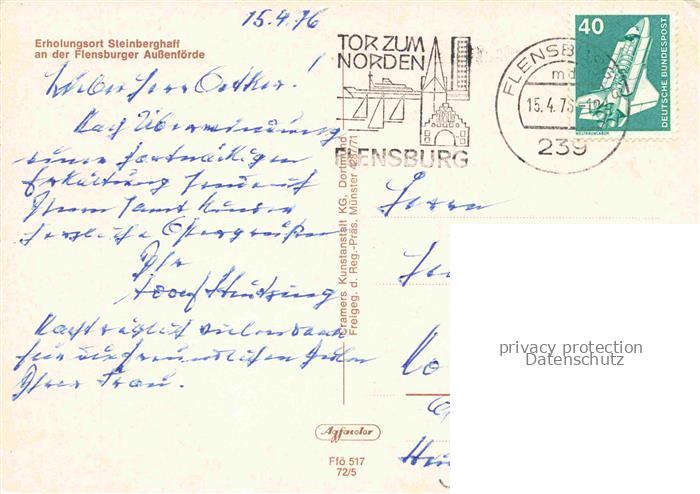 15.4.76
Erholungsort Steinberghaff
an der Flensburger Außenförde
Lieber Herr Oetker!
Nach Überwindung
einer hartnäckigen
Erkältung sende ich
Ihnen samt Kindern
herzliche Ostergrüße
Ihr
Adolf
Nachträglich vielen Dank
für die freundlichen Zeilen
Ihrer Frau.
TOR ZUM
NORDEN
FLENSBURG
FLENSBU
15.4.76-
239
40
DEUTSCHE BUNDESPOST
WELTRAUMLABOR
Cramers Kunstanstalt KG, Dortmund
Freigeg. d. Reg.-Präs. Münster
Herrn
privacy protection
Datenschutz
Agfacolor
Ffö 517
72/5